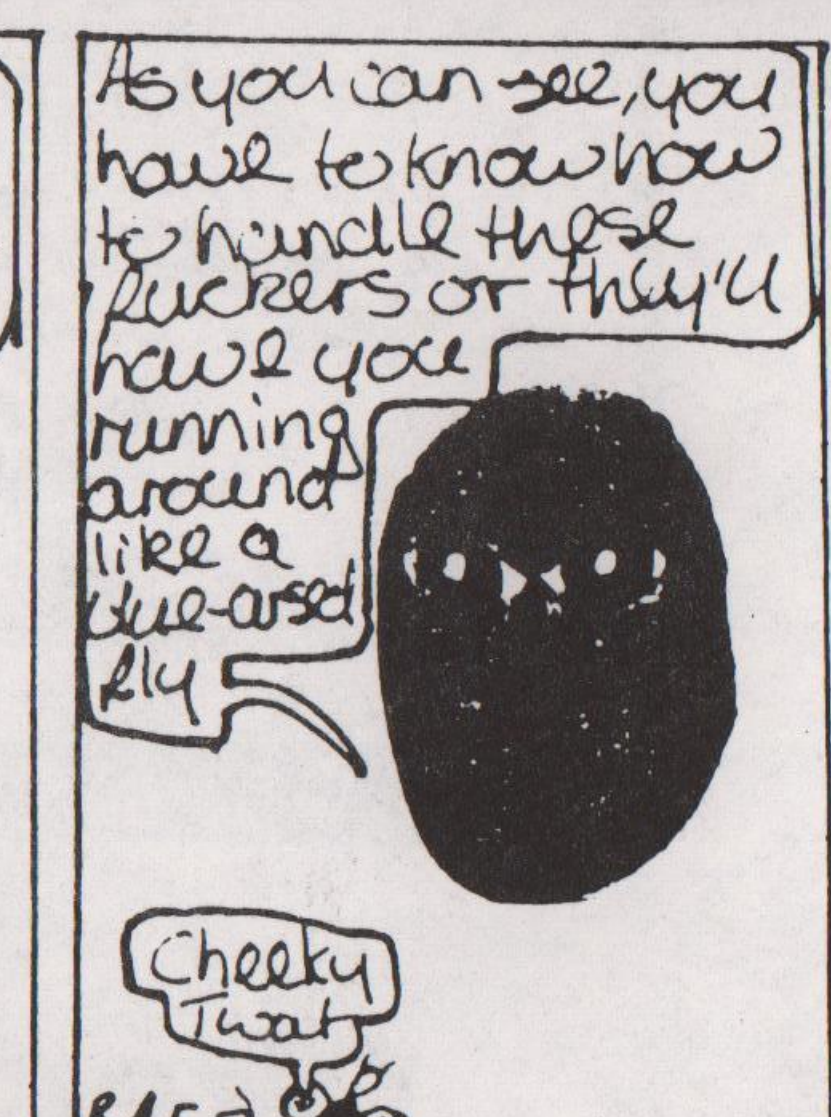 As you can see, you
have to know how
to handle these
fuckers or they'll
have you
running
around
like a
blue-arsed
fly
Cheeky
Twat